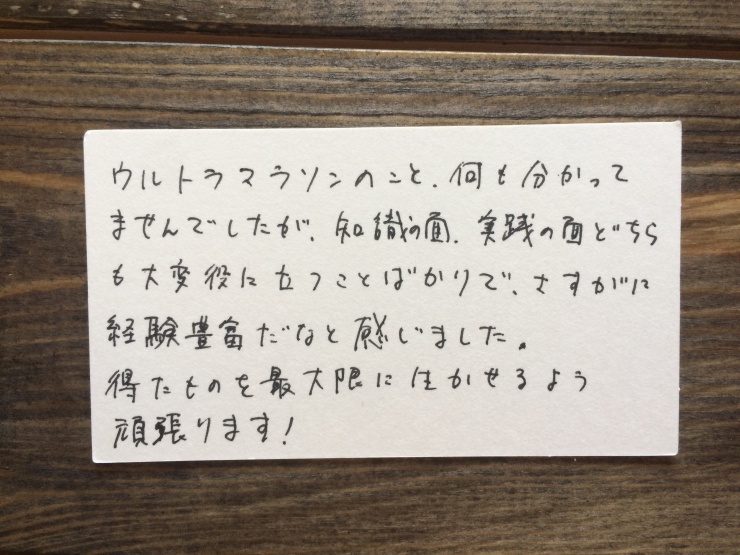 ウルトラマラソンのこと、何も分かって
ませんでしたが、知識の面、実践の面どちら
も大変役に立つことばかりで、さすがに
経験豊富だなと感じました。
得たものを最大限に生かせるよう
頑張ります!